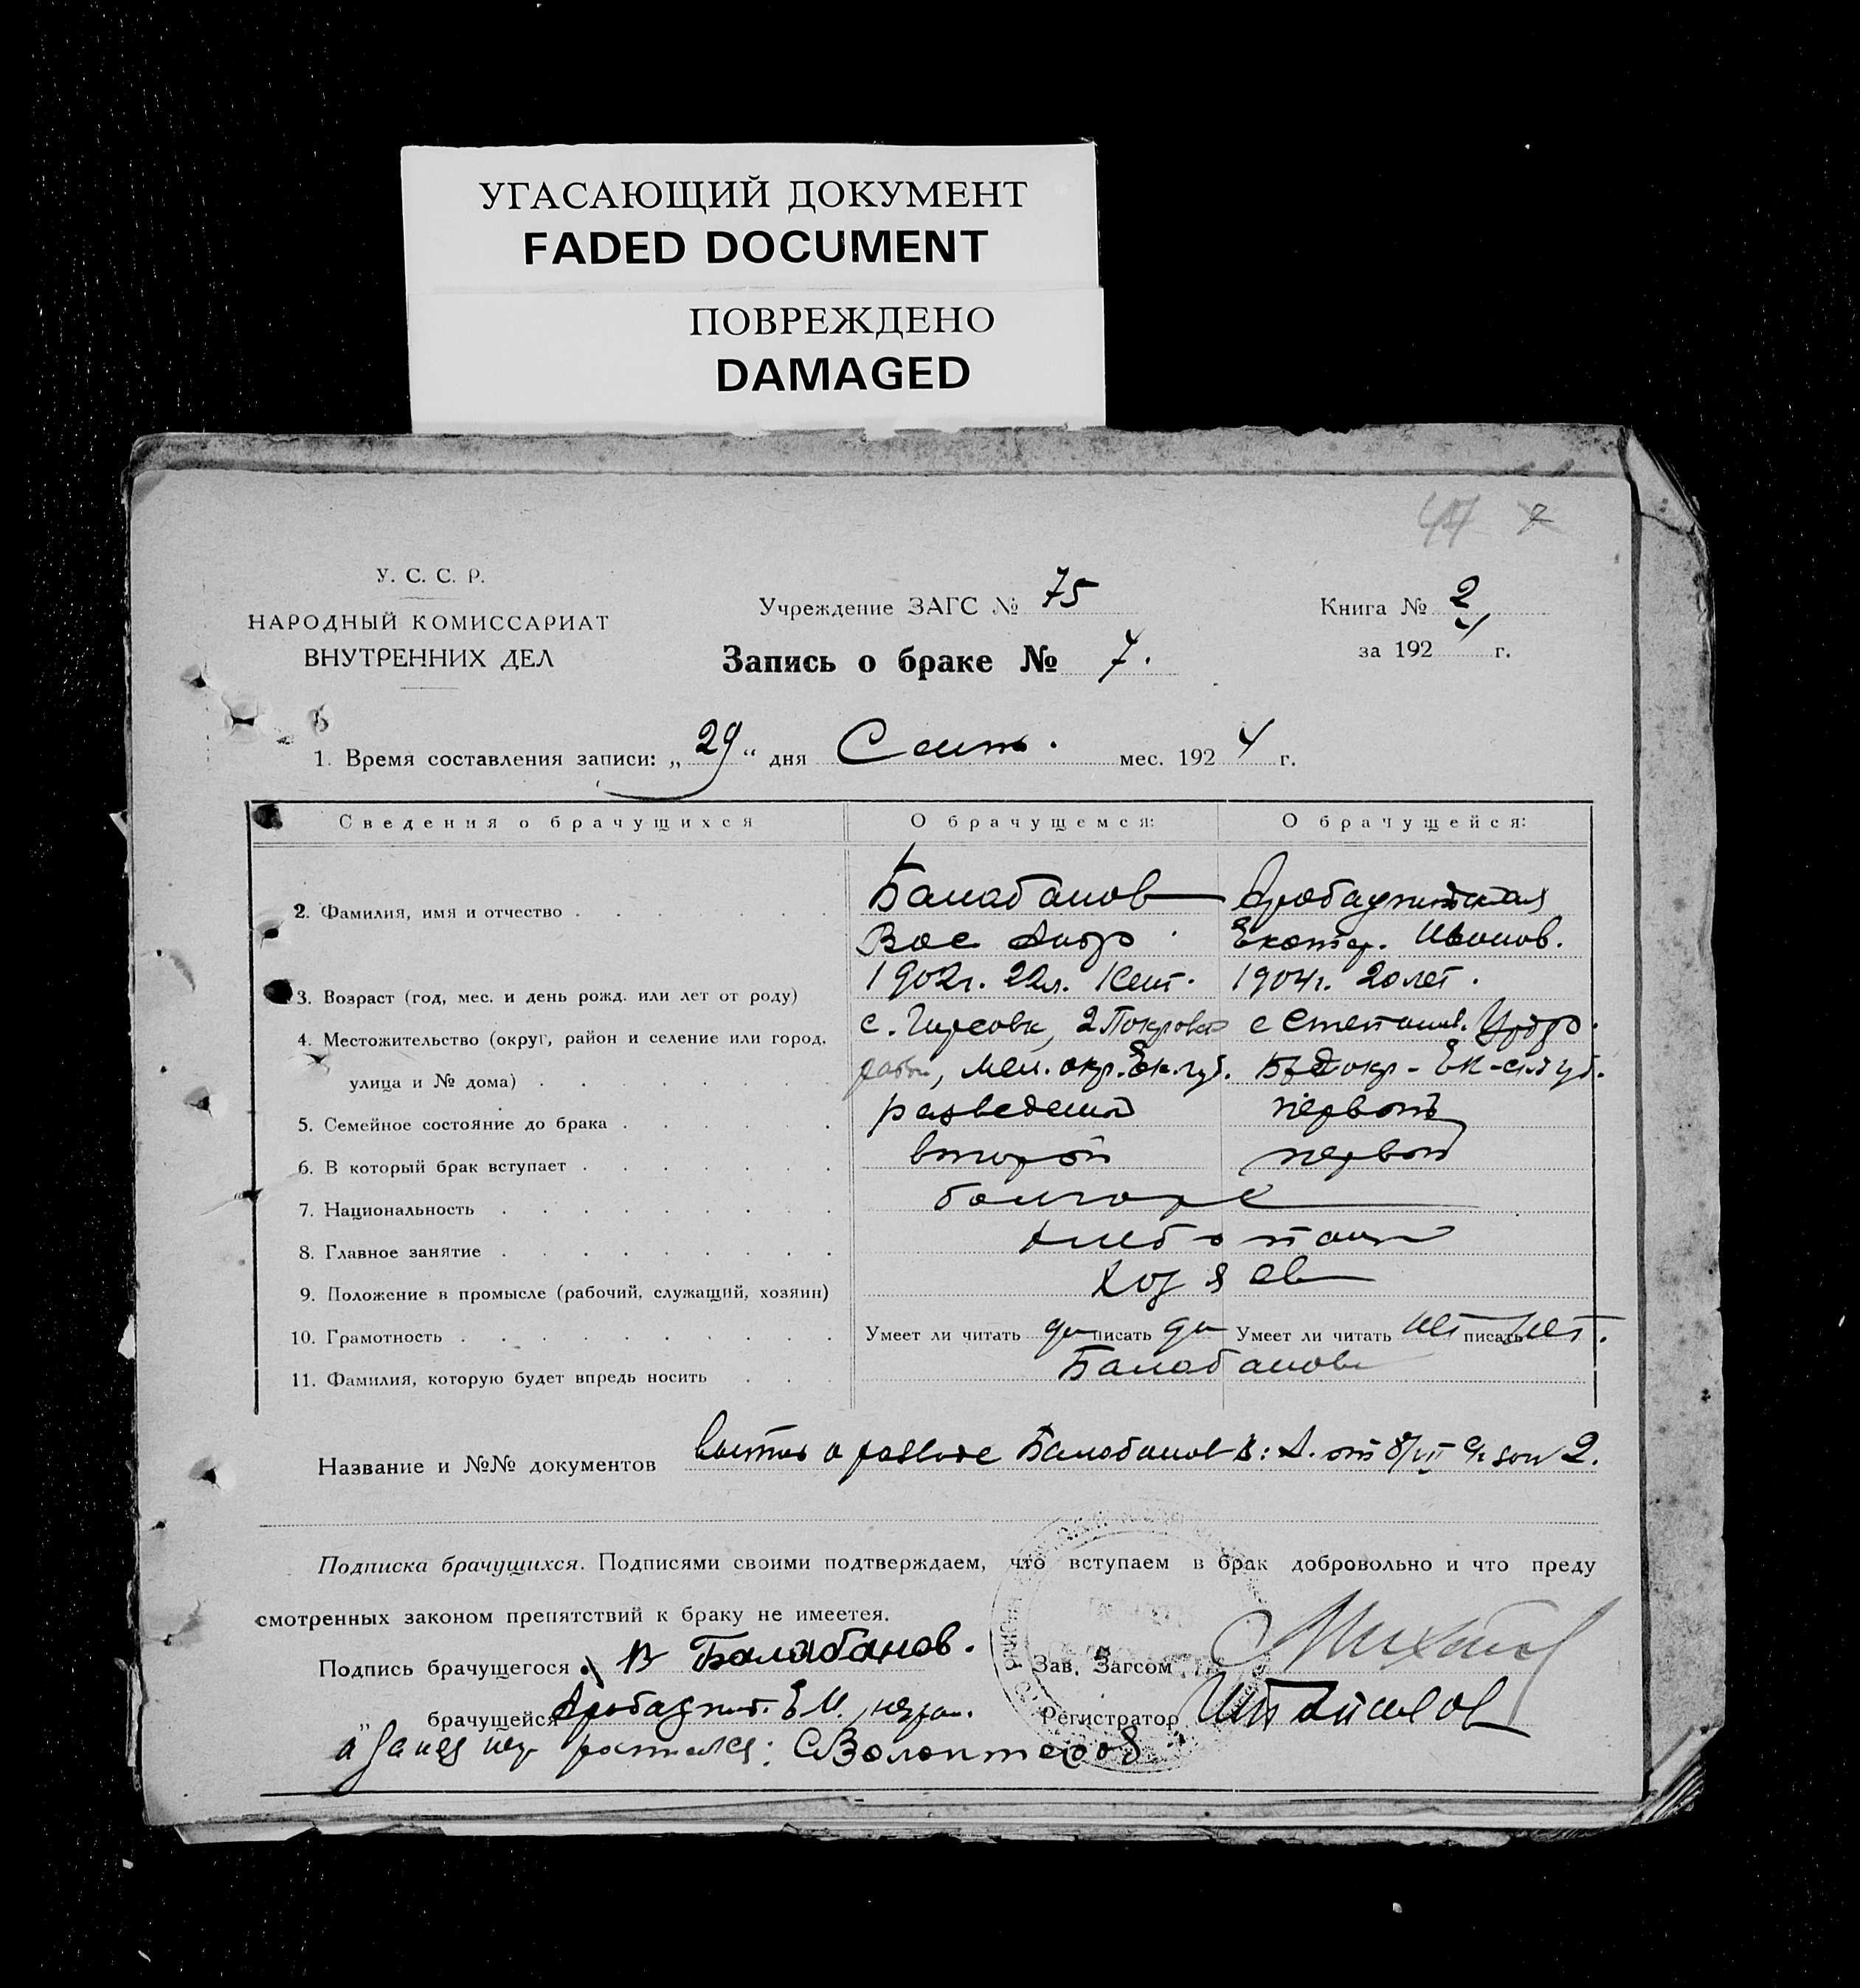 УГАСАЮЩИЙ ДОКУМЕНТ
FADED DOCUMENT
ПОВРЕЖДЕНО
DAMAGED
У. С. С. Р.
НАРОДНЫЙ КОМИССАРИАТ
ВНУТРЕННИХ ДЕЛ
Учреждение ЗАГС № 75
Запись о браке № 7.
Книга № 2
за 1924 г.
1. Время составления записи: „29“ дня Сент. мес. 1924 г.
Сведения о брачущихся О брачущемся: О брачущейся:
2. Фамилия, имя и отчество Балабанов
Вас Андр Екатер. Иванов.
3. Возраст (год, мес. и день рожд. или лет от роду) 1902г. 22л. 1 Сент. 1904г. 20 лет.
4. Местожительство (округ, район и селение или город, с. Гирсовк, 2 Покровс с Степанив.
улица и № дома) район, Мел. окр. Ек. губ. окр - Ек-ск губ.
5. Семейное состояние до брака разведеный первый
6. В который брак вступает второй первый
7. Национальность болгаре
8. Главное занятие хлебопаш
9. Положение в промысле (рабочий, служащий, хозяин) хозяев
10. Грамотность Умеет ли читать да писать да Умеет ли читать нет писать нет.
11. Фамилия, которую будет впредь носить Балабановы
Название и №№ документов о разводе Балабанов В. А. от 2.
Подписка брачущихся. Подписями своими подтверждаем, что вступаем в брак добровольно и что преду
смотренных законом препятствий к браку не имеется.
Подпись брачущегося В Балабанов. Зав. Загсом
„ брачущейся Е И, негра. Регистратор
а за нея негр : СВолонтеров